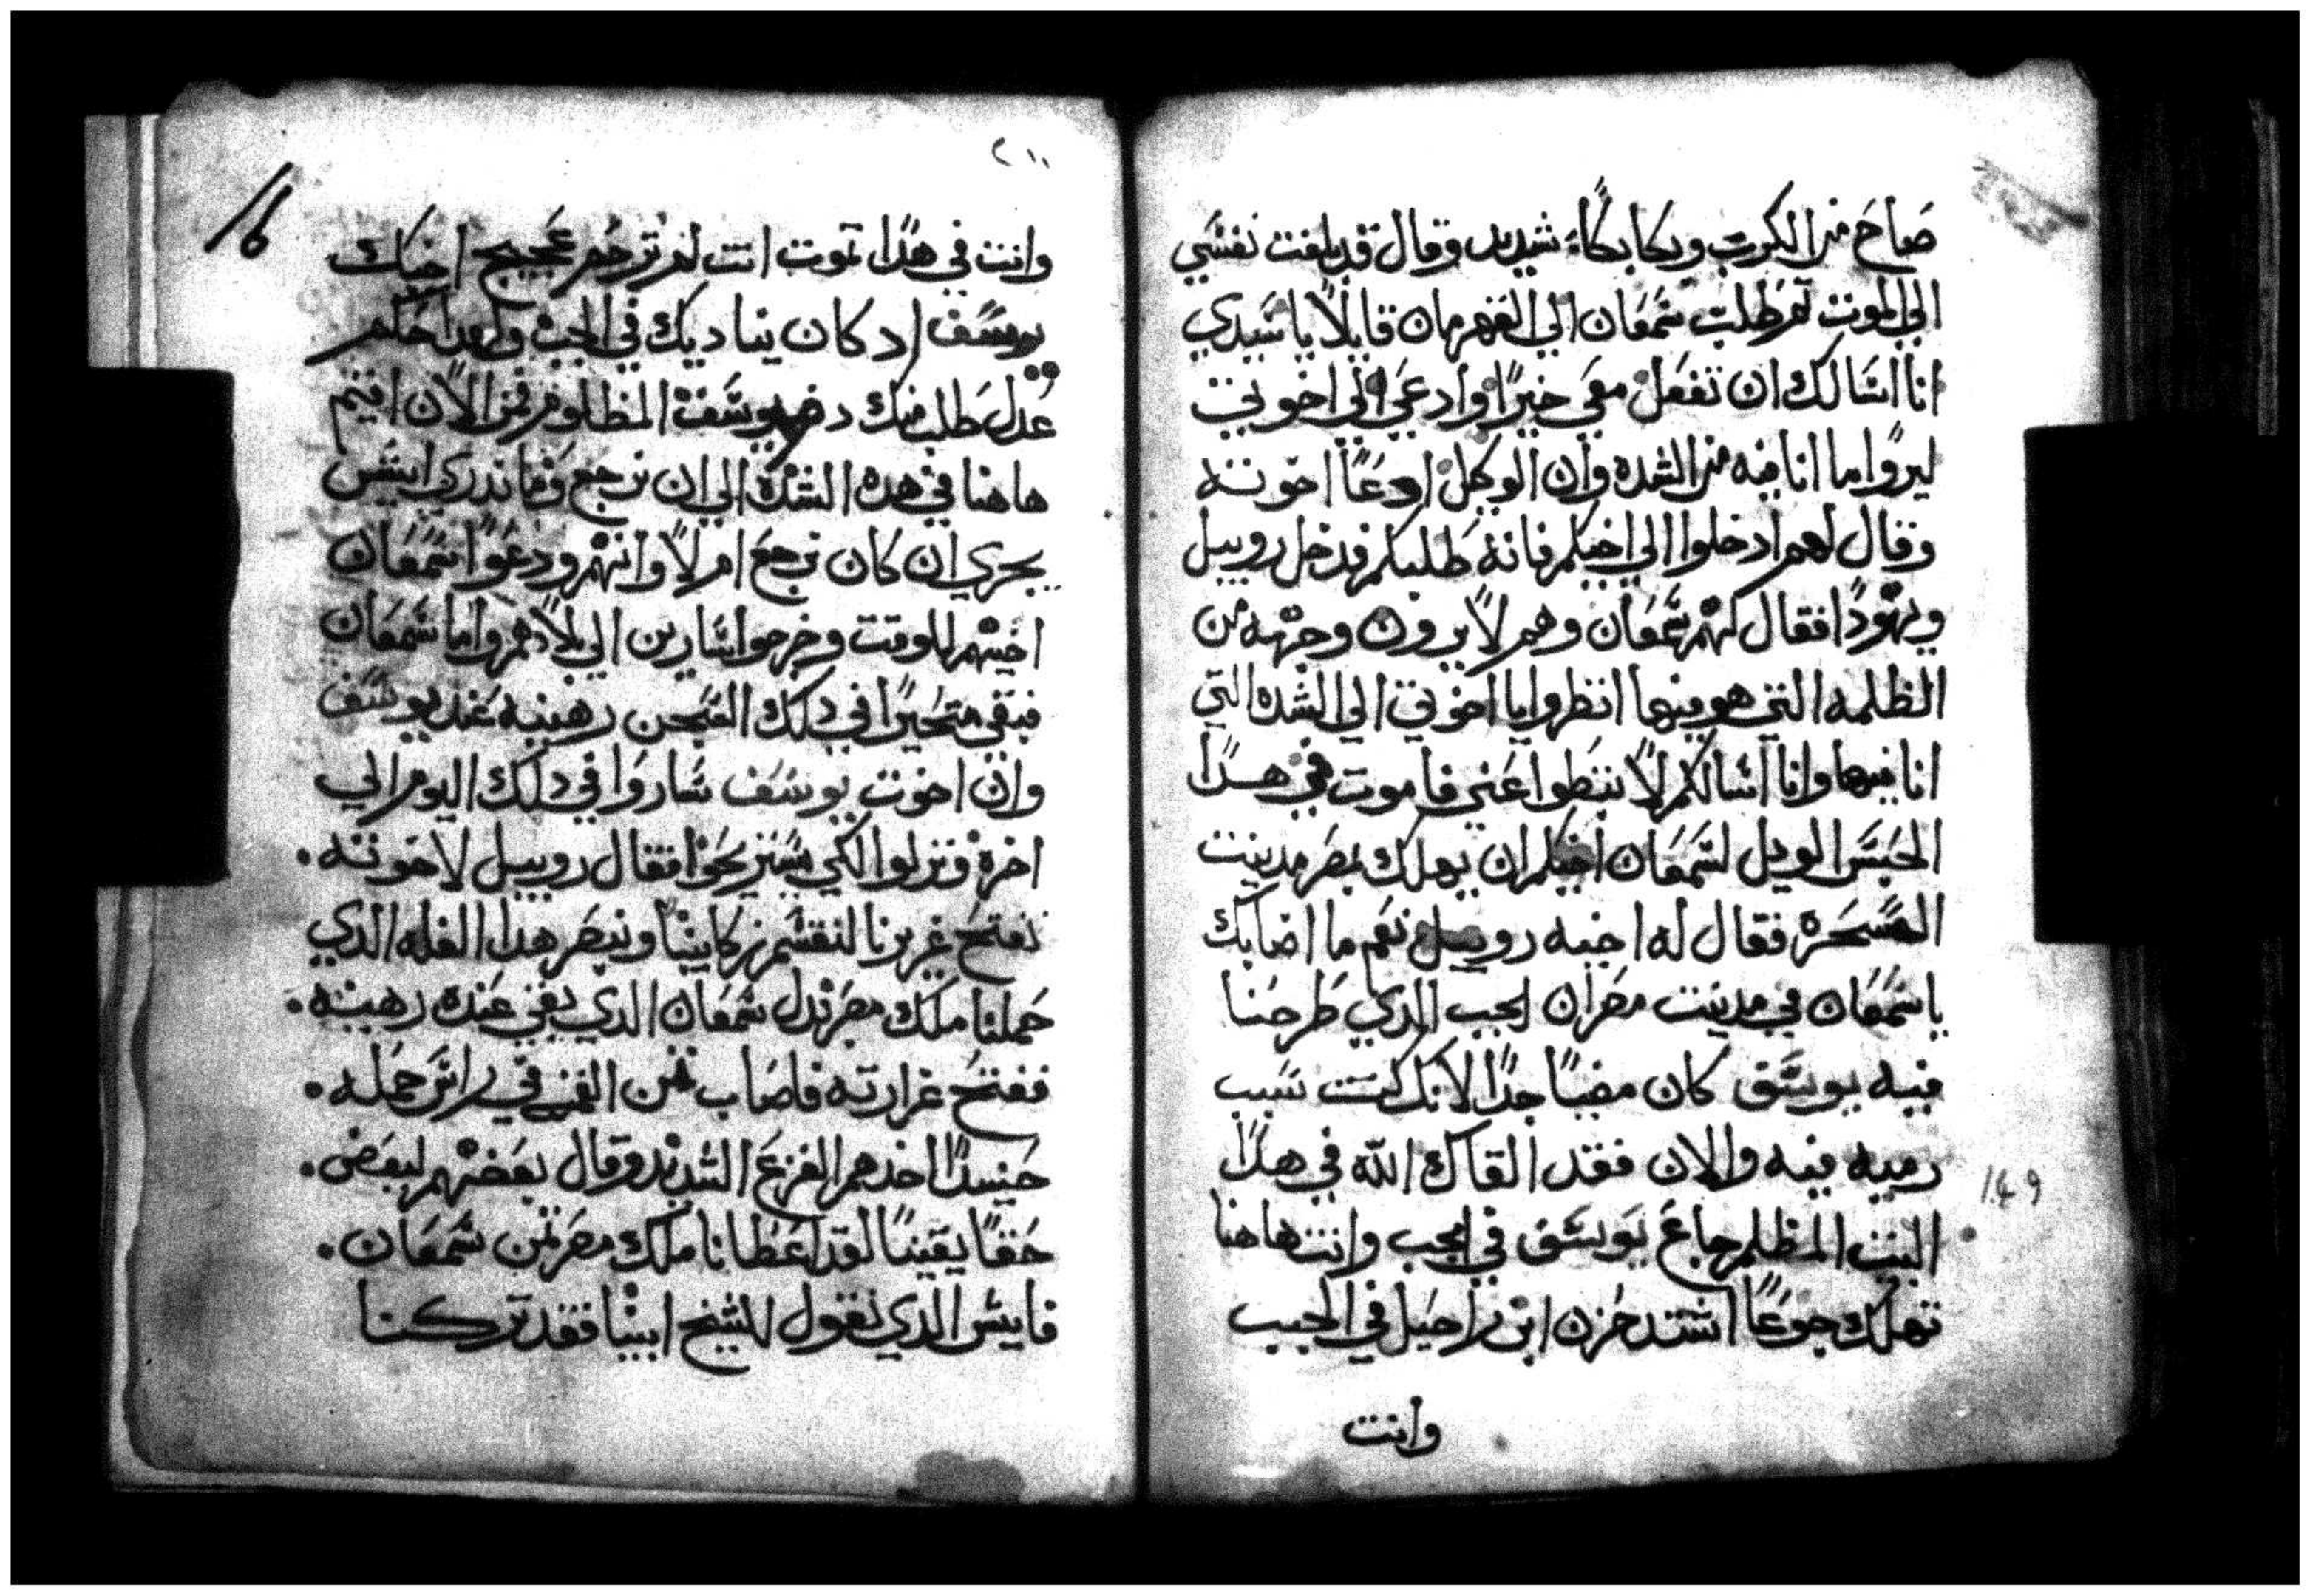 صاح من الكرب وبكا بكاءً شديد وقال قد بلغت نفسي
الي الموت تم طلب شمعان الي القهرمان قايلاً يا سيدي
انا اسالك ان تفعل معي خيرًا وادعي لي اخوتي
ليروا ما انا فيه من الشده وان الوكيل ادعا اخوته
وقال لهم ادخلوا الي اخيكم فانه طلبكم فدخل روبيل
ويهودا فقال لهم شمعان وهم لا يرون وجهه من
الظلمه التي هو فيها انظروا يا اخوتي الي الشده التي
انا فيها وانا اسالكم لا تبطوا عني فاموت في هدا
الحبس الويل لشمعان اخيكم ان يهلك بمصر مدينت
السحره فقال له اخيه روبيل نعم ما اصابك
يا شمعان في مدينت مصر ان الجب الدي طرحنا
فيه يوسف كان مضيًا جدًا لانك كنت سبب
رميه فيه والان فقد القاك الله في هدا
البيت المظلم جاع يوسف في الجب وانت هاهنا
تهلك جوعًا اشتد حزن ابن راحيل في الجب
وانت
٢١١
16
وانت في هدا تموت انت لم ترحم عجيج اخيك
يوسف اد كان يناديك في الجب ولهدا حكم
عدل طلب منك دم يوسف المظلوم فمن الان اقيم
هاهنا في هده الشده الي ان نرجع وما ندري ايش
يجري ان كان نرجع ام لا وانهم ودعوا شمعان
اخيهم للوقت وخرجوا سايرين الي بلادهم واما شمعان
فبقي متحيرًا في دلك السجن رهينه عند يوسف
وان اخوت يوسف ساروا في دلك اليوم الي
اخره ونزلوا لكي يستريحوا فقال روبيل لاخوته
نفتح غريرنا لنقسم زكايبنا ونبصر هدا الغله الدي
حملنا ملك مصر بدل شمعان الدي بقي عنده رهينه
ففتح غرارته فاصاب تمن القمح في راس حمله
حينيدًا اخدهم الفزع الشديد وقال بعضهم لبعض
حقًا يقينًا لقد اعطانا ملك مصر تمن شمعان
فايش الدي نقول للشيخ ابينا فقد تركنا
149